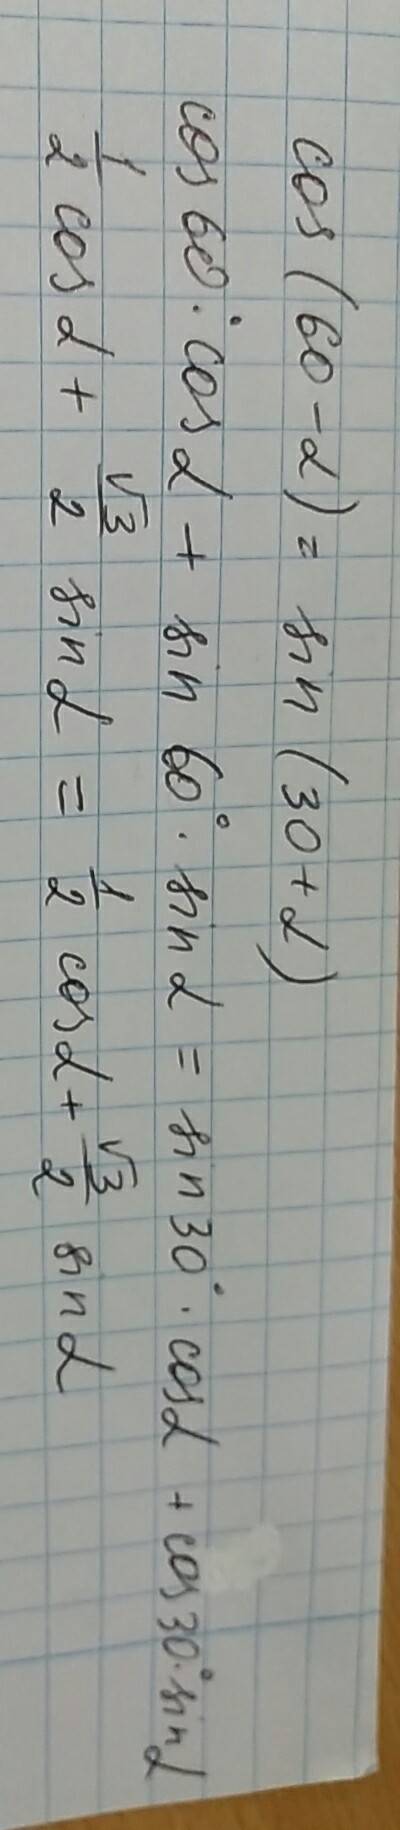 cos(60-α) = sin(30+α)
cos60°·cosα + sin60°·sinα = sin30°·cosα + cos30°·sinα
1/2 cosα + √3/2 sinα = 1/2 cosα + √3/2 sinα